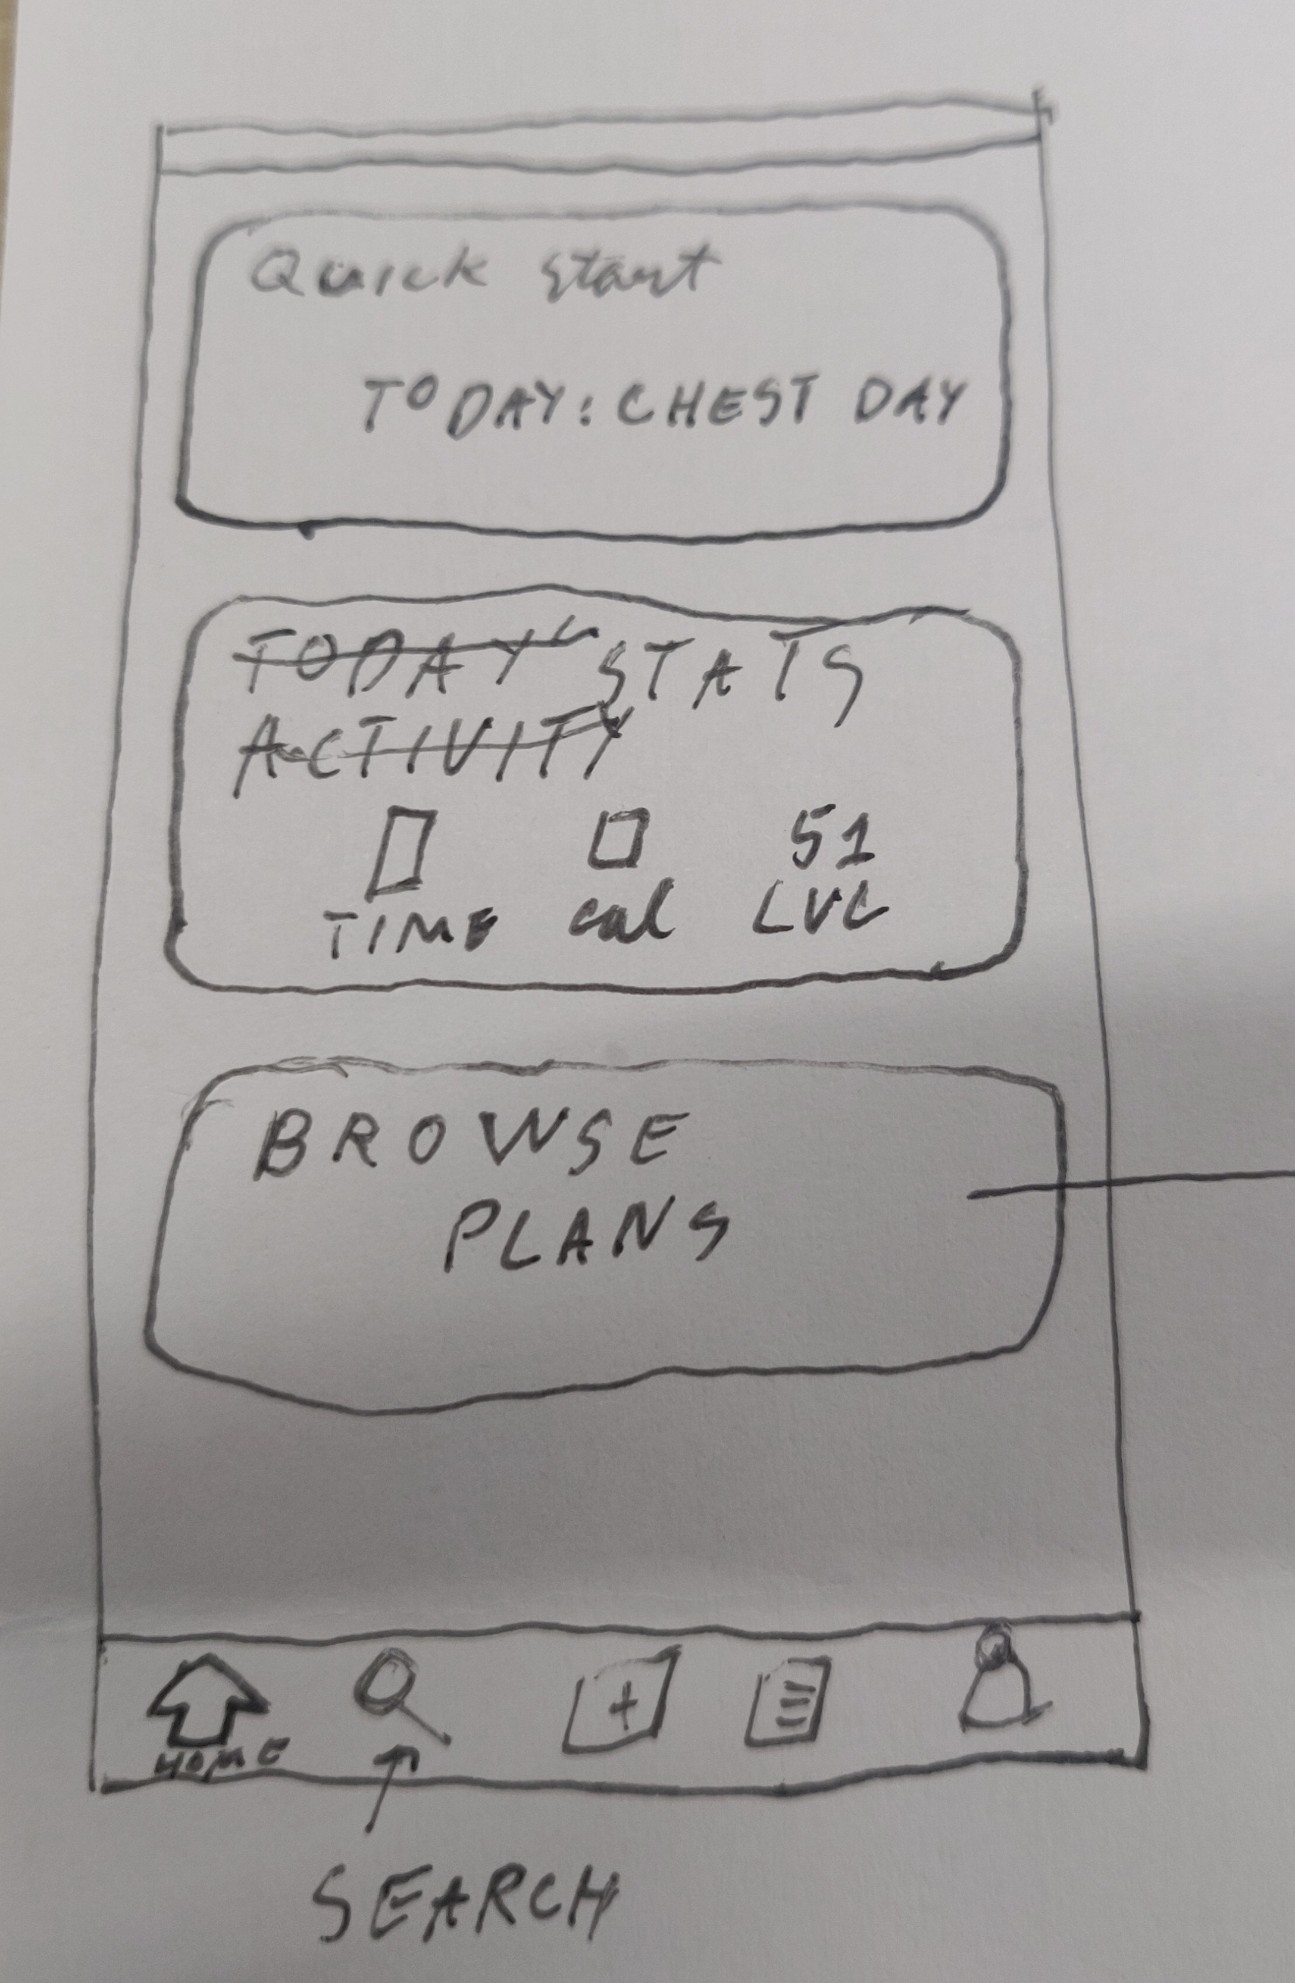 Quick start
TODAY: CHEST DAY
TODAY' STATS
ACTIVITY
51
TIME cal LVL
BROWSE
PLANS
+
HOME
SEARCH